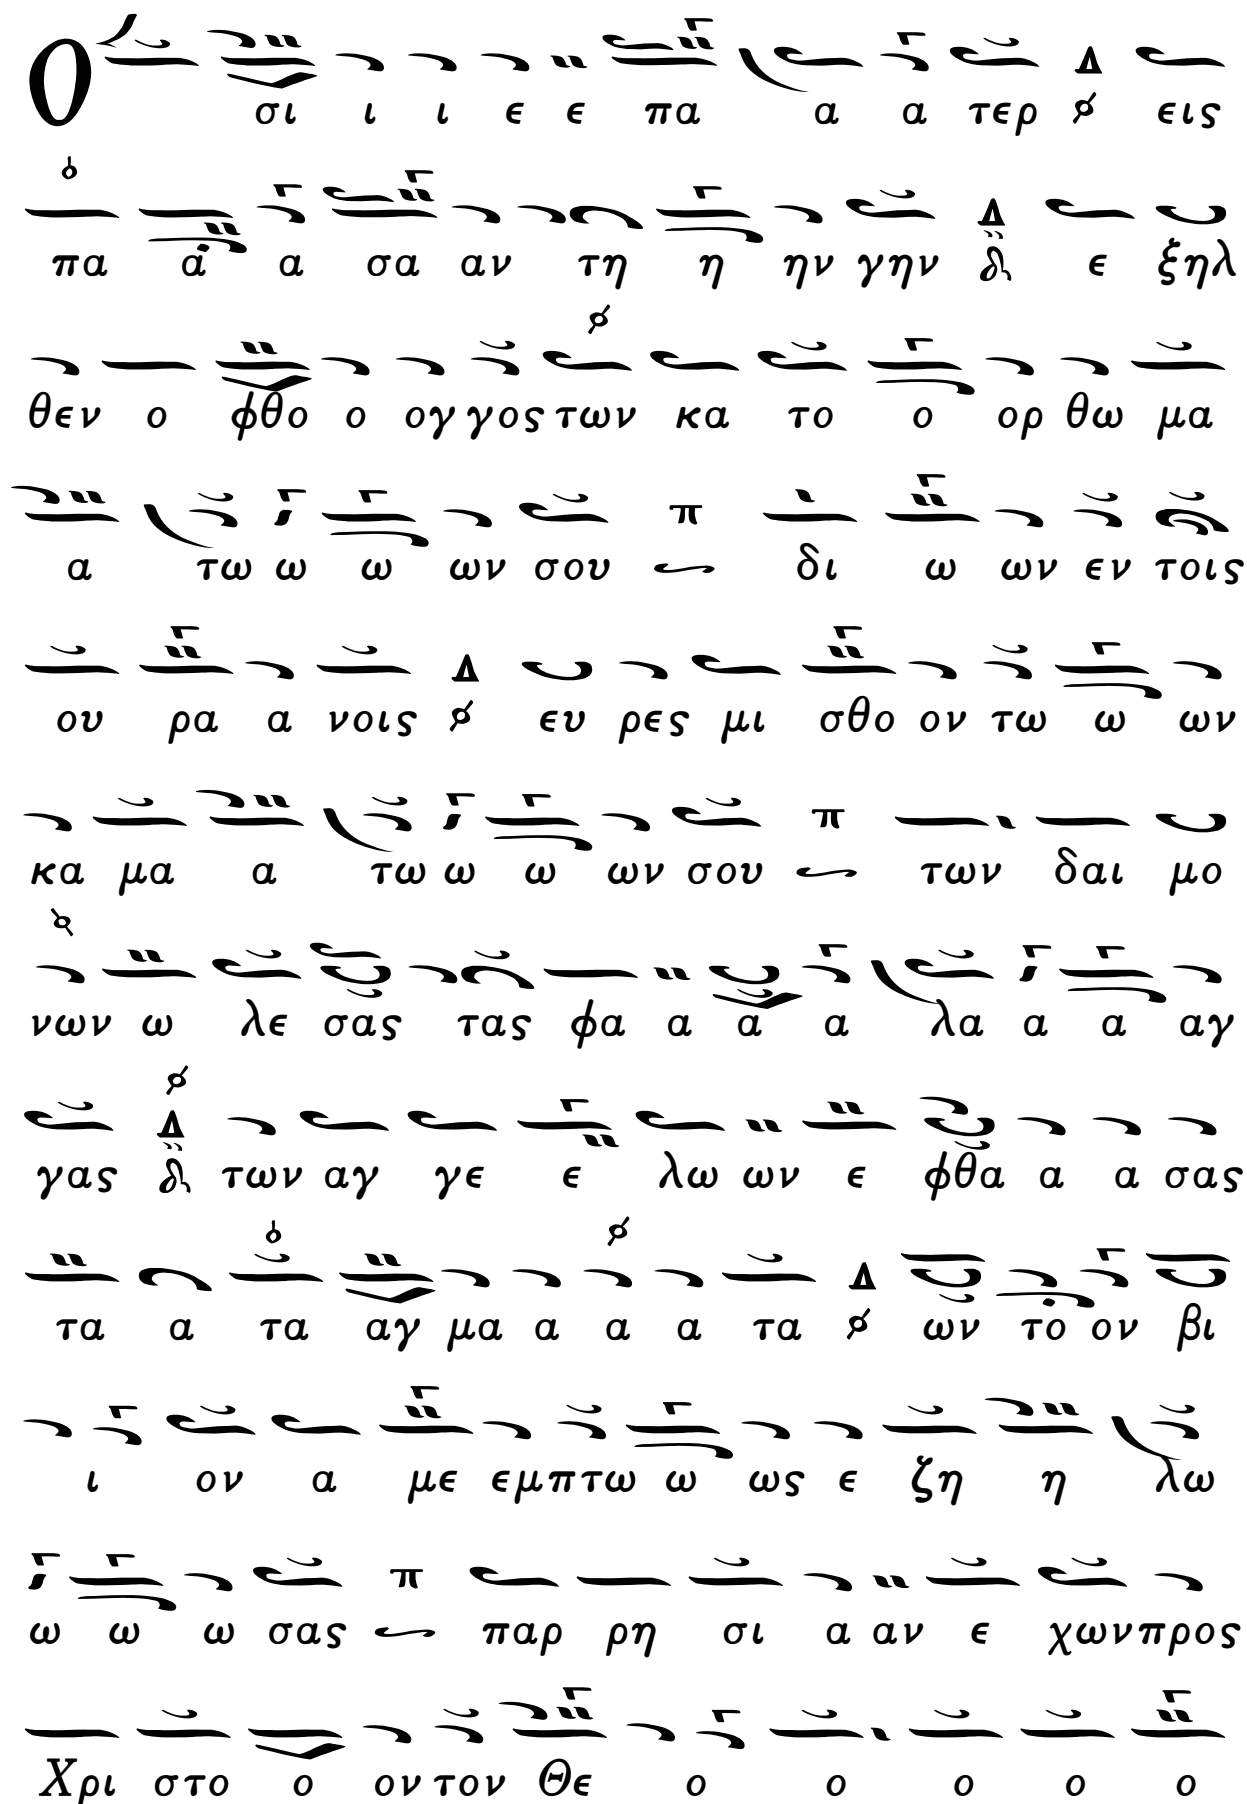 Ο σι ι ι ε ε πα α α τερ Δ εις
πα α α σα αν τη η ην γην Δ ε ξηλ
θεν ο φθο ο ογ γος των κα το ο ορ θω μα
α τω ω ω ων σου π δι ω ων εν τοις
ου ρα α νοις Δ ευ ρες μι σθο ον τω ω ων
κα μα α τω ω ω ων σου π των δαι μο
νων ω λε σας τας φα α α α λα α α αγ
γας Δ των αγ γε ε λω ων ε φθα α α σας
τα α τα αγ μα α α α τα Δ ων το ον βι
ι ον α με εμπτω ω ως ε ζη η λω
ω ω ω σας π παρ ρη σι α αν ε χωνπρος
Χρι στο ο ον τον Θε ο ο ο ο ο